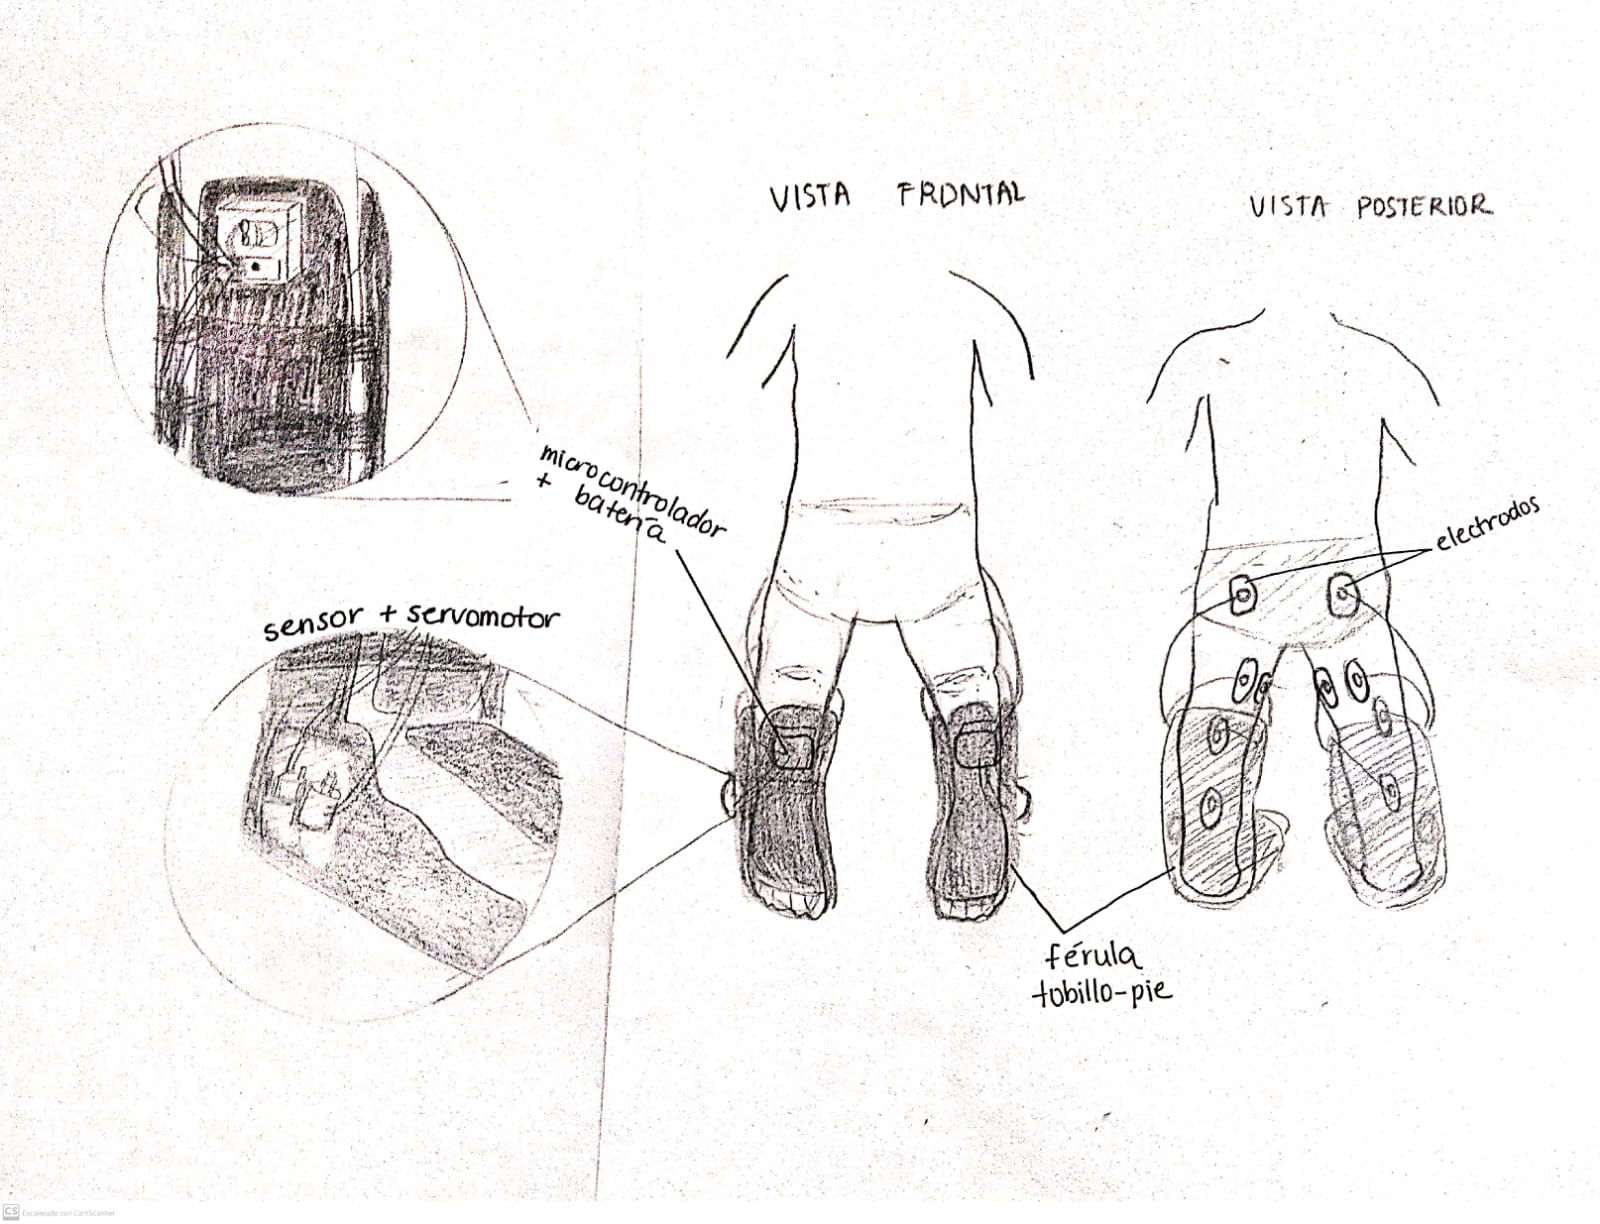 VISTA FRONTAL
VISTA POSTERIOR
microcontrolador
+ batería
electrodos
sensor + servomotor
férula
tobillo-pie
CS Escaneado con CamScanner